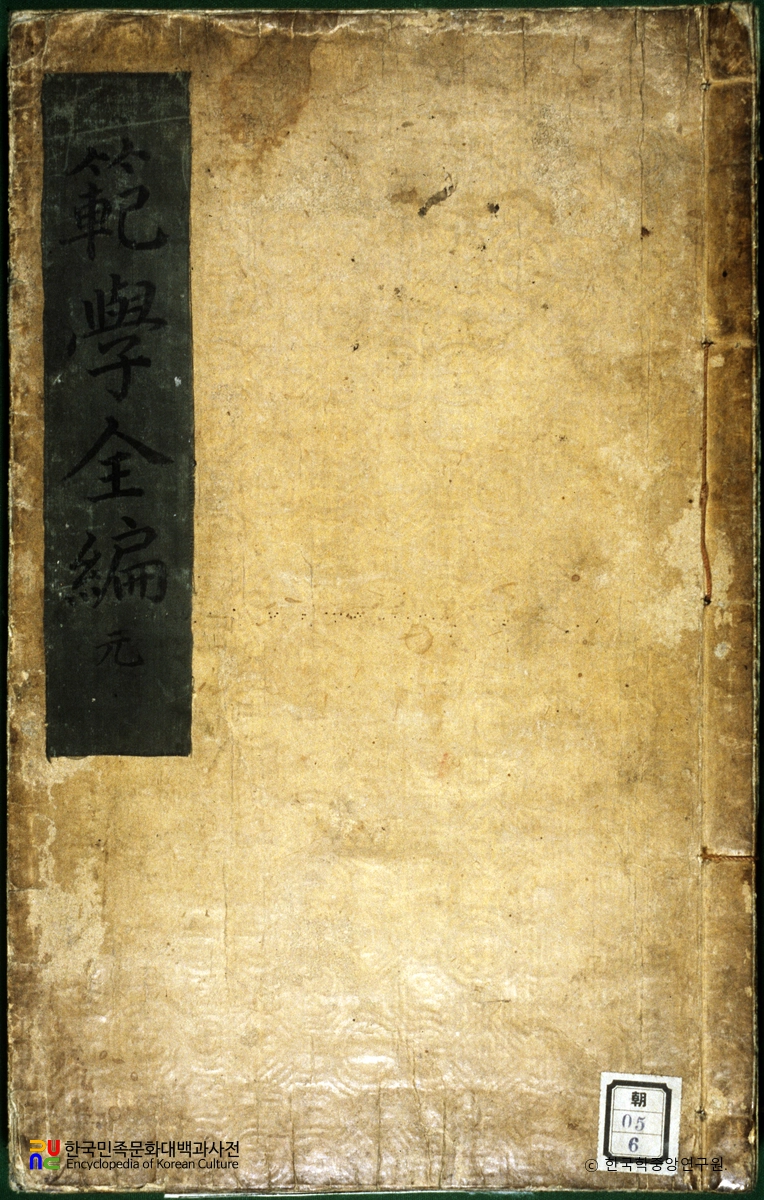 範學全編 元
朝
05
6
한국민족문화대백과사전
Encyclopedia of Korean Culture
© 한국학중앙연구원.